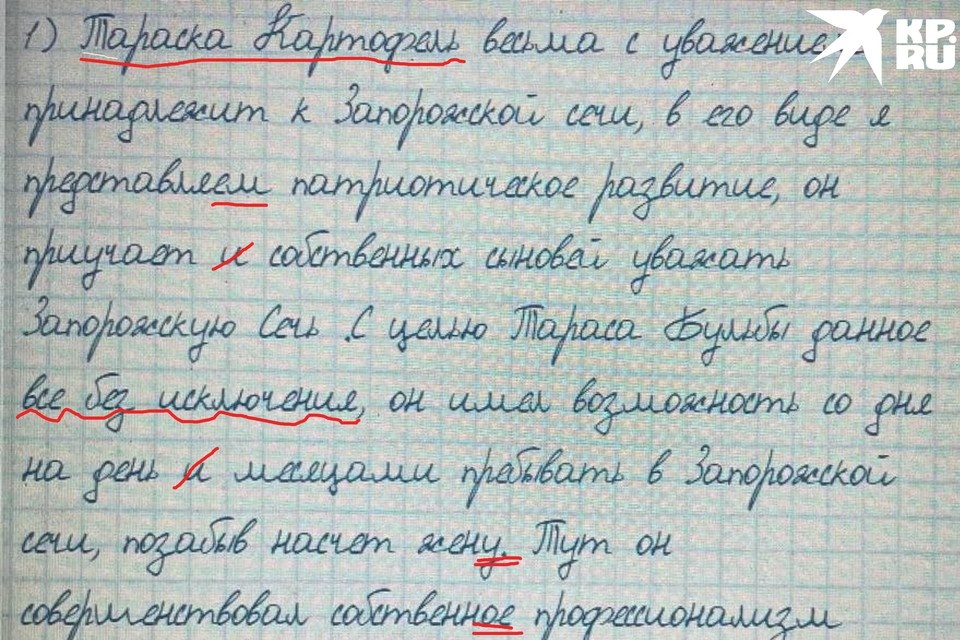 1) Тараска Картофель весьма с уважением
KP.
RU
принадлежит к Запорожской сечи, в его виде я
представляем патриотическое развитие, он
приучает и собственных сыновей уважать
Запорожскую Сечь. С целью Тараса Бульбы данное
все без исключения, он имел возможность со дня
на день и месяцами пребывать в Запорожской
сечи, позабыв насчет жену. Тут он
совершенствовал собственное профессионализм